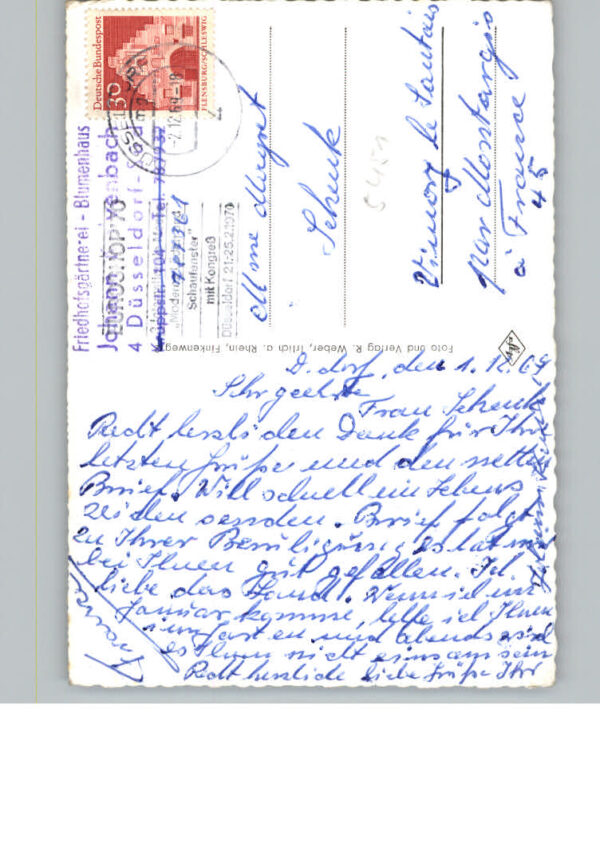 Deutsche Bundespost
30
FLENSBURG/SCHLESWIG
-2.12.69-18
Friedhofsgärtnerei - Blumenhaus
Johann
4 Düsseldorf-
Kruppstr. 104 Tel.
EUROSHOP 70
Schaufenster"
mit Kongreß
Düsseldorf 21.-25.2.1970
Mme Magret
Schenk
Vimory le Lautais
par Montargis
à France
45
Foto und Verlag R. Weber, Irlich a. Rhein, Finkenweg
D.dorf, den 1.12.69
Sehr geehrte
Frau Schenk
Recht herzlichen Dank für Ihre
letzten Grüße und den netten
Brief. Will schnell ein Lebens
zeichen senden. Brief folgt
zu Ihrer Beruhigung es hat mir
bei Ihnen gut gefallen. Ich
liebe das Land. Wenn ich im
Januar komme, helfe ich Ihnen
im Garten und abends wird
es Ihnen nicht einsam sein
Recht herzliche liebe Grüße Ihr